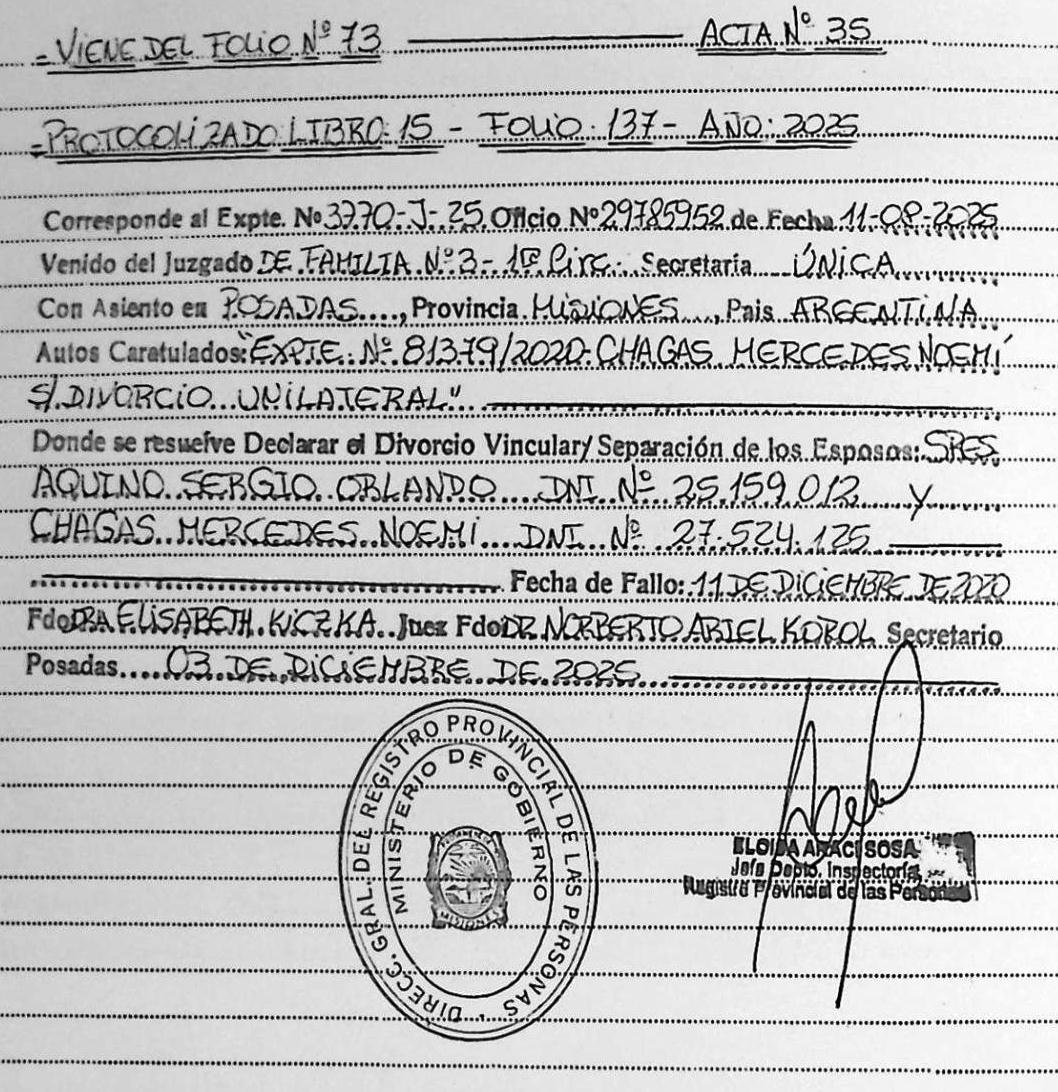 = VIENE DEL FOLIO Nº 73 ——— ACTA Nº 35
= PROTOCOLIZADO LIBRO: 15 - FOLIO: 137 - AÑO: 2025
Corresponde al Expte. Nº 3770-J-25. Oficio Nº 29785952 de Fecha 11-08-2025
Venido del Juzgado DE FAMILIA Nº 3 - 1ra Circ. Secretaria ÚNICA
Con Asiento en POSADAS...., Provincia MISIONES..., Pais ARGENTINA
Autos Caratulados: "EXPTE. Nº 81379/2020. CHAGAS MERCEDES NOEMÍ
S/ DIVORCIO UNILATERAL"
Donde se resuelve Declarar el Divorcio Vincular y Separación de los Esposos: SRES
AQUINO SERGIO ORLANDO DNI Nº 25.159.012 Y
CHAGAS MERCEDES NOEMÍ DNI Nº 27.524.125
Fecha de Fallo: 11 DE DICIEMBRE DE 2020
Fdo DRA ELISABETH KICZKA Juez Fdo DR NORBERTO ARIEL KOROL Secretario
Posadas.... 03 DE DICIEMBRE DE 2025
DIRECC. GRAL. DEL REGISTRO PROVINCIAL DE LAS PERSONAS
MINISTERIO DE GOBIERNO
MISIONES
ELOISA ARACI SOSA
Jefa Depto. Inspectoría
Registro Provincial de las Personas